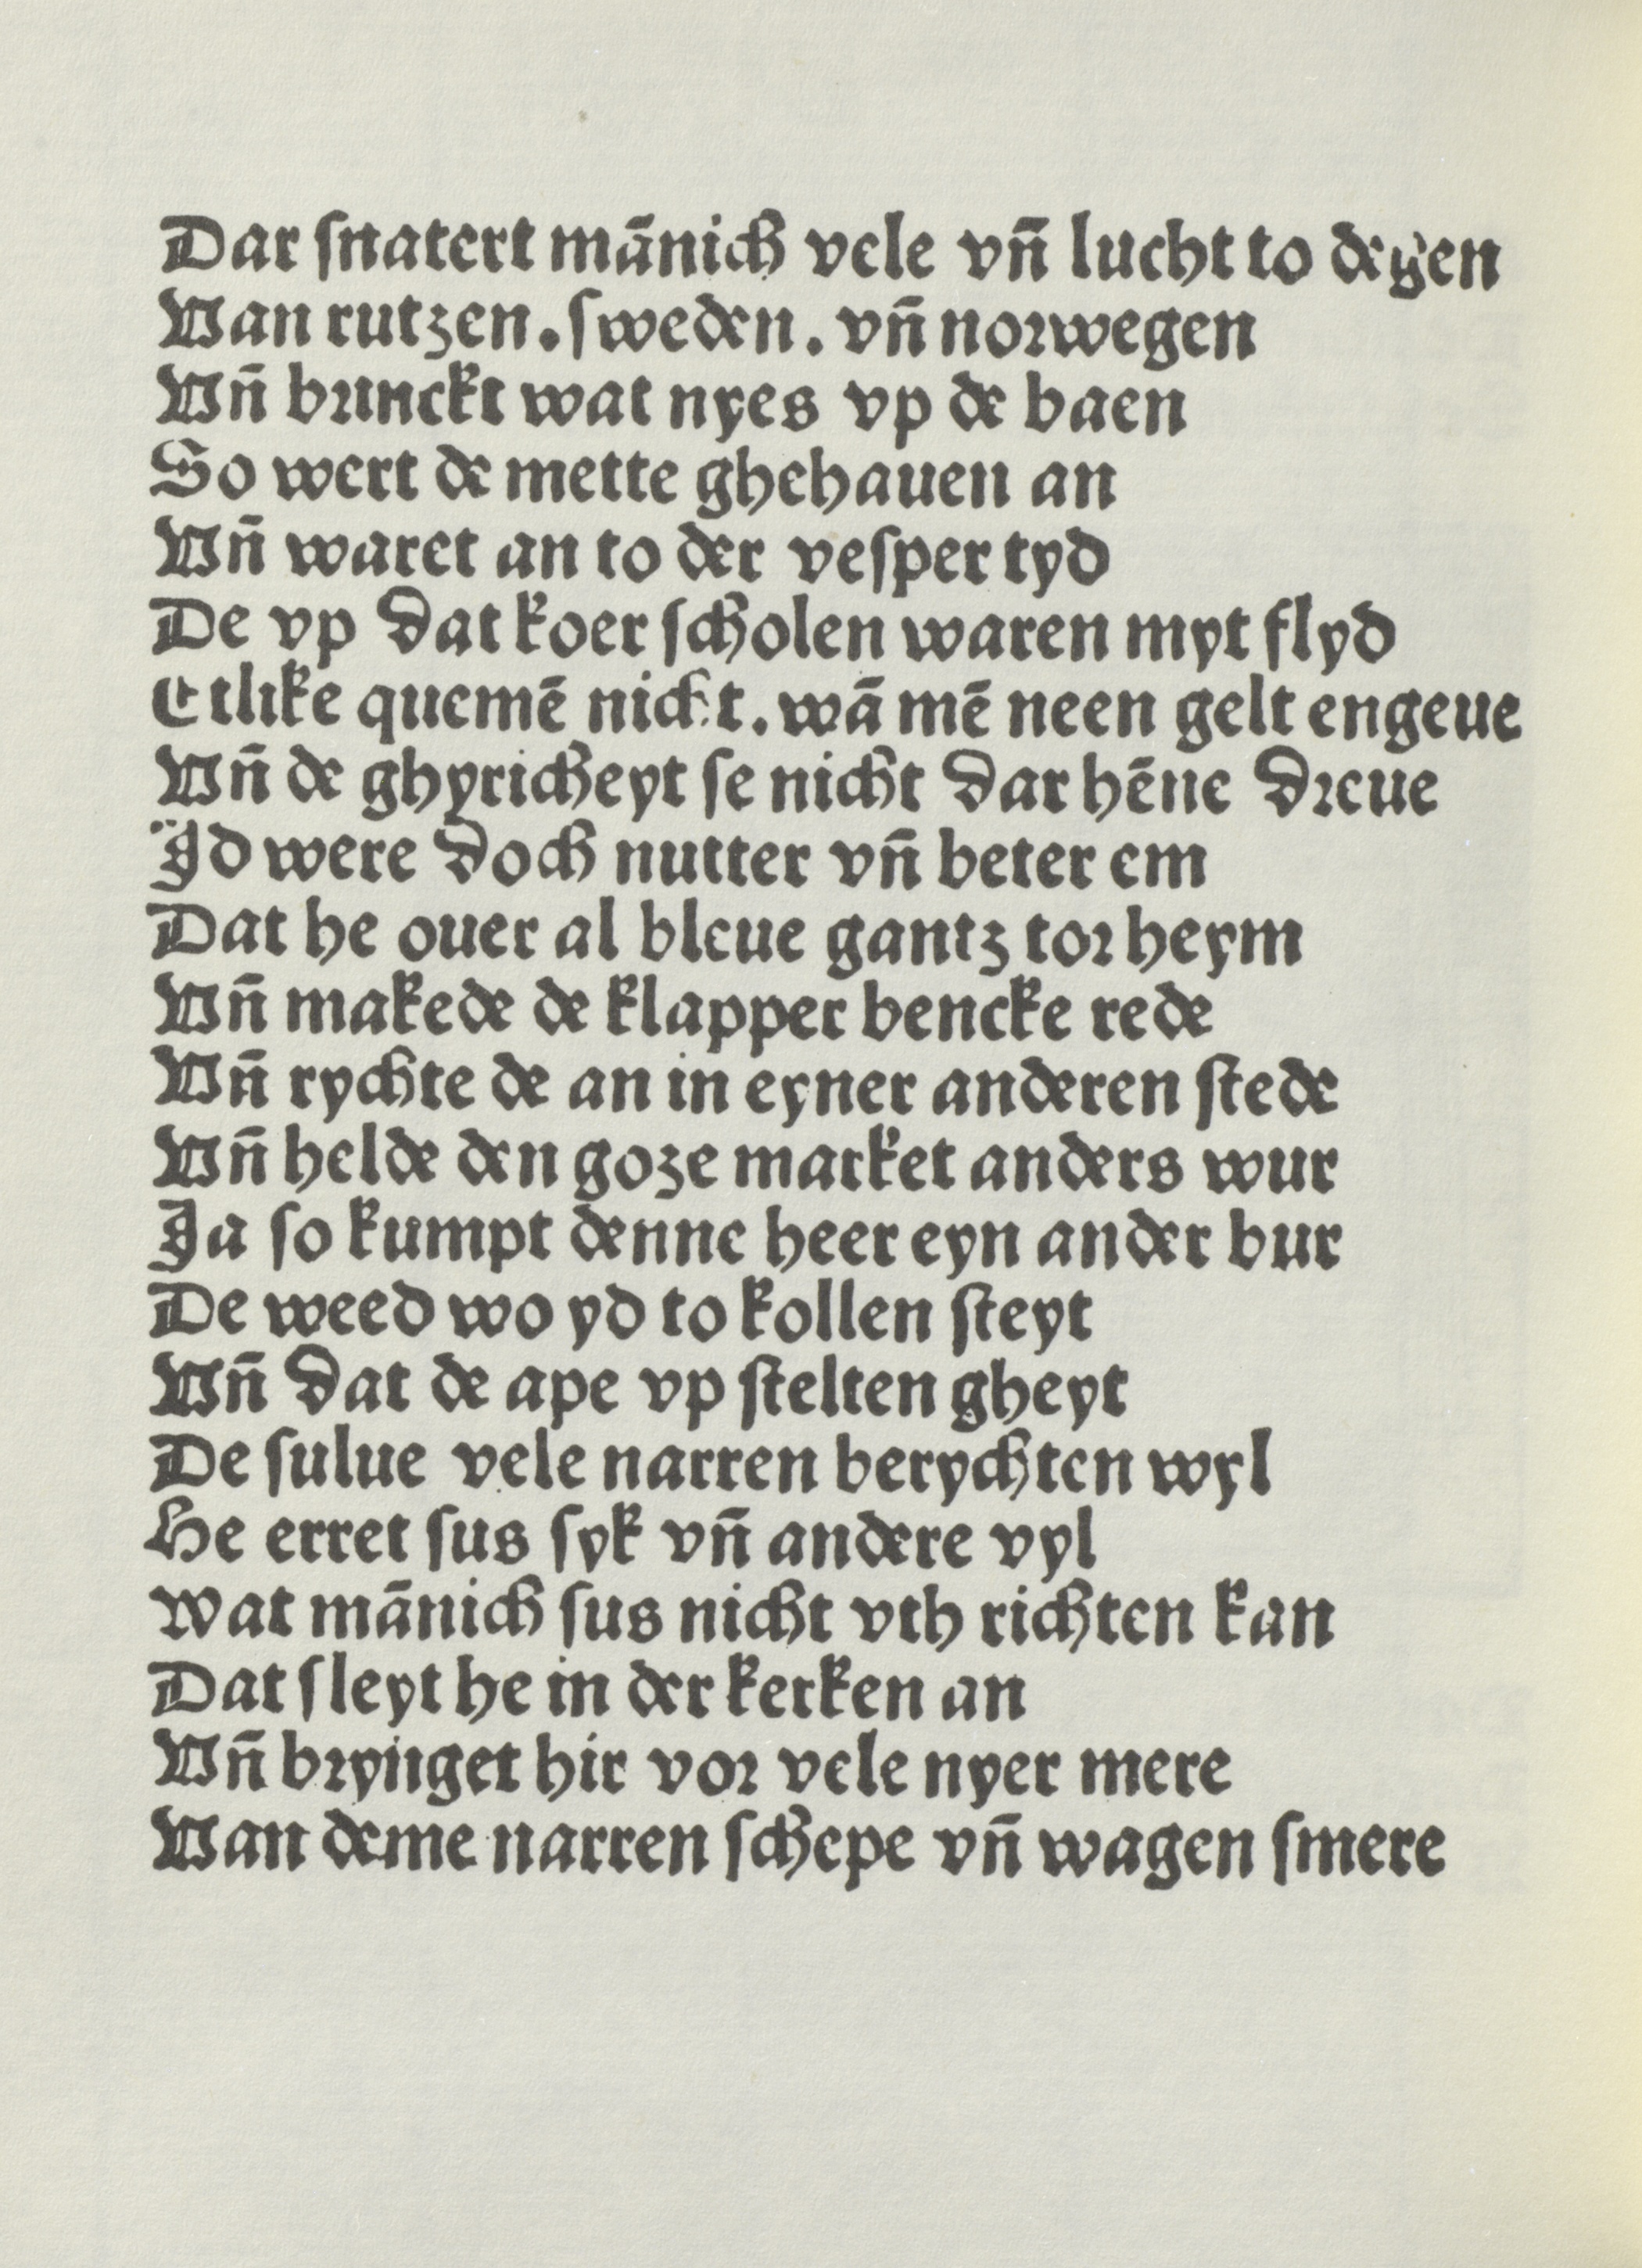 Dar ſnatert mānich vele vñ lucht to degen
Van rutzen. ſweden. vñ norwegen
Vñ brinckt wat nyes vp de baen
So wert de mette ghehauen an
Vñ waret an to der veſper tyd
De vp dat koer ſcholen waren myt flyd
Etlike quemē nicht. wā mē neen gelt engeue
Vñ de ghyricheyt ſe nicht dar hēne dreue
Id were doch nutter vñ beter em
Dat he ouer al bleue gantz tor heym
Vñ makede de klapper bencke rede
Vñ rychte de an in eyner anderen ſtede
Vñ helde den goze market anders wur
Ja ſo kumpt denne heer eyn ander bur
De weed wo yd to kollen ſteyt
Vñ dat de ape vp ſtelten gheyt
De ſulue vele narren berychten wyl
He erret ſus ſyk vñ andere vyl
Wat mānich ſus nicht vth richten kan
Dat ſleyt he in der kerken an
Vñ brynget hir vor vele nyer mere
Van deme narren ſchepe vñ wagen ſmere